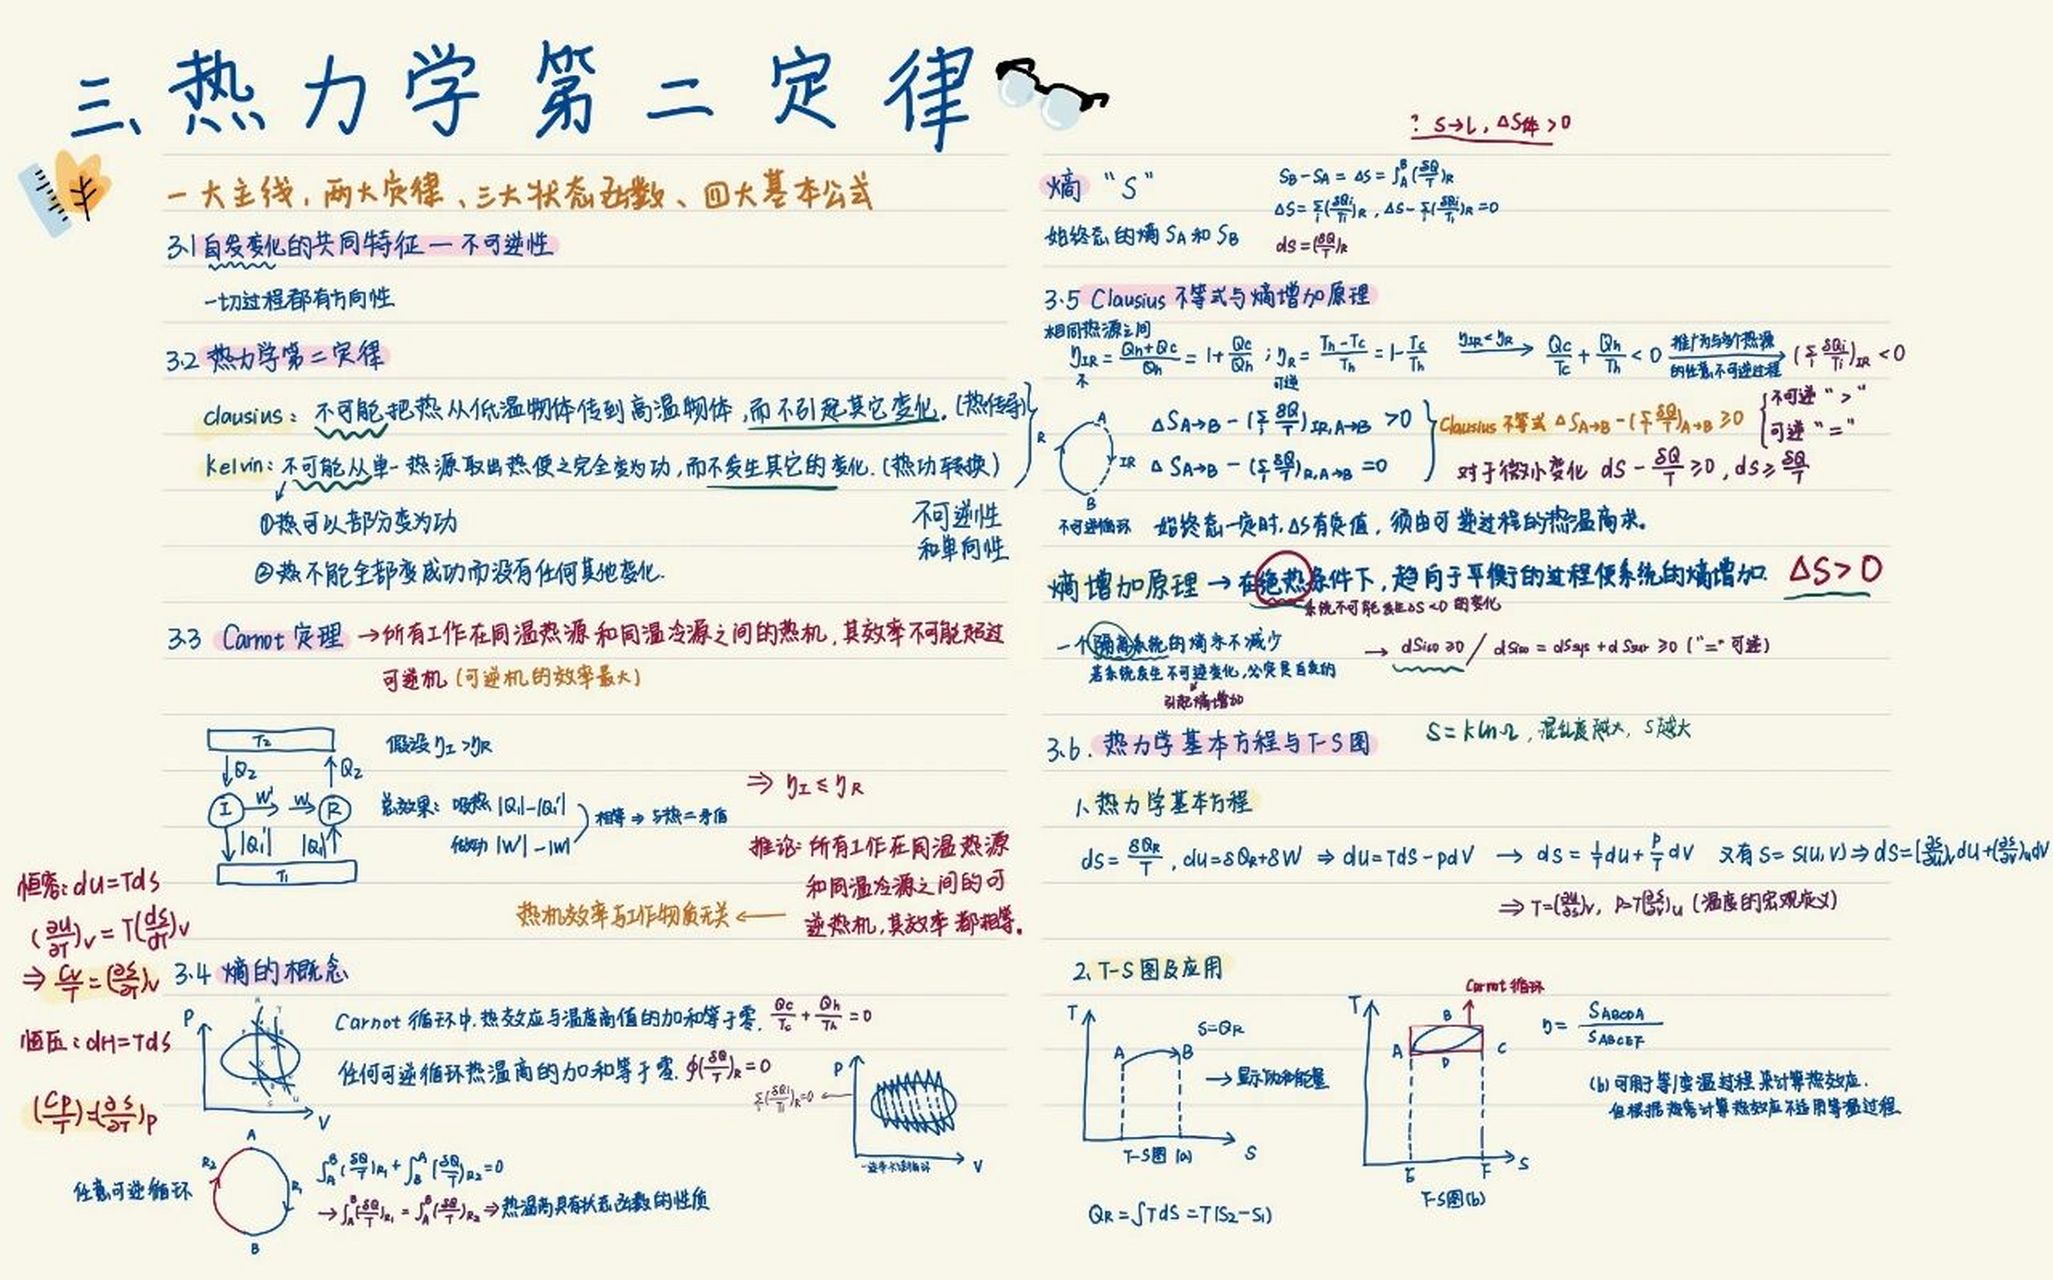 三、热力学第二定律
一大主线，两大定律、三大状态函数、四大基本公式
3.1 自发变化的共同特征 — 不可逆性
一切过程都有方向性
3.2 热力学第二定律
clausius：不可能把热从低温物体传到高温物体，而不引起其它变化。(热传导)
Kelvin：不可能从单一热源取出热使之完全变为功，而不发生其它的变化.(热功转换)
①热可以部分变为功
②热不能全部变成功而没有任何其他变化.
不可逆性
和单向性
3.3 Carnot 定理 →所有工作在同温热源和同温冷源之间的热机，其效率不可能超过
可逆机 (可逆机的效率最大)
T₂
Q₂ Q₂
I W' W R
|Q₁'| |Q₁|
T₁
假设 η_I > η_R
总效果：吸热 |Q₁|-|Q₁'|
做功 |W'|-|W|
相等 ⇒ 与热二矛盾
⇒ η_I ≤ η_R
推论：所有工作在同温热源
和同温冷源之间的可
逆热机，其效率都相等.
热机效率与工作物质无关 ←
恒容：dU=TdS
(∂U/∂T)_V = T(dS/dT)_V
⇒ C_V/T = (∂S/∂T)_V
恒压：dH=TdS
(C_P/T)=(∂S/∂T)_P
3.4 熵的概念
P
V
Carnot 循环中，热效应与温度商值的加和等于零. Qc/Tc + Qh/Th = 0
任何可逆循环热温商的加和等于零. ∮(δQ/T)_R = 0
Σ(δQi/Ti)_R=0 ←
P
V
任意可逆循环
A
R₂ R₁
B
∫_A^B(δQ/T)_R₁ + ∫_B^A(δQ/T)_R₂ = 0
→ ∫_A^B(δQ/T)_R₁ = ∫_A^B(δQ/T)_R₂ ⇒ 热温商具有状态函数的性质
? S→L，ΔS体>0
熵 “S”
S_B - S_A = ΔS = ∫_A^B(δQ/T)_R
ΔS=Σ_i(δQi/Ti)_R，ΔS-Σ_i(δQi/Ti)_R=0
始终态的熵 S_A 和 S_B
dS=(δQ/T)_R
3.5 Clausius 不等式与熵增加原理
相同热源之间
η_IR = (Qh+Qc)/Qh = 1+Qc/Qh；η_R = (Th-Tc)/Th = 1-Tc/Th η_IR<η_R → Qc/Tc + Qh/Th < 0 推广为与多个热源的任意不可逆过程 → (Σ_i δQi/Ti)_IR < 0
不 可逆
A
R IR
B
不可逆循环
ΔS_A→B - (Σ_i δQ/T)_IR,A→B > 0
ΔS_A→B - (Σ_i δQ/T)_R,A→B = 0
Clausius 不等式 ΔS_A→B - (Σ_i δQ/T)_A→B ≥ 0
不可逆“>”
可逆“=”
对于微小变化 dS - δQ/T ≥ 0，dS ≥ δQ/T
始终态一定时，ΔS有定值，须由可逆过程的热温商求。
熵增加原理 → 在绝热条件下，趋向于平衡的过程使系统的熵增加. ΔS>0
系统不可能发生ΔS<0的变化
一个隔离系统的熵永不减少 → dS_iso ≥ 0 / dS_iso = dS_sys + dS_sur ≥ 0 (“=”可逆)
若系统发生不可逆变化，必定是自发的
引起熵增加
3.6. 热力学基本方程与T-S图
S=klnΩ，混乱度越大，S越大
1、热力学基本方程
dS = δQ_R/T，dU=δQ_R+δW ⇒ dU=TdS-pdV → dS = 1/T dU + P/T dV 又有 S=S(U,V) ⇒ dS=(∂S/∂U)_V dU+(∂S/∂V)_U dV
⇒ T=(∂U/∂S)_V，P=T(∂S/∂V)_U (温度的宏观定义)
2、T-S图及应用
T
A B
S
S=Q_R
→ 显示功和能量
T-S图 (a)
Q_R=∫TdS=T(S₂-S₁)
Carnot 循环
T
A B C D
E F S
T-S图(b)
η = S_ABCDA / S_ABCEF
(b) 可用于等/变温过程来计算热效应.
但根据热容计算热效应不适用等温过程.